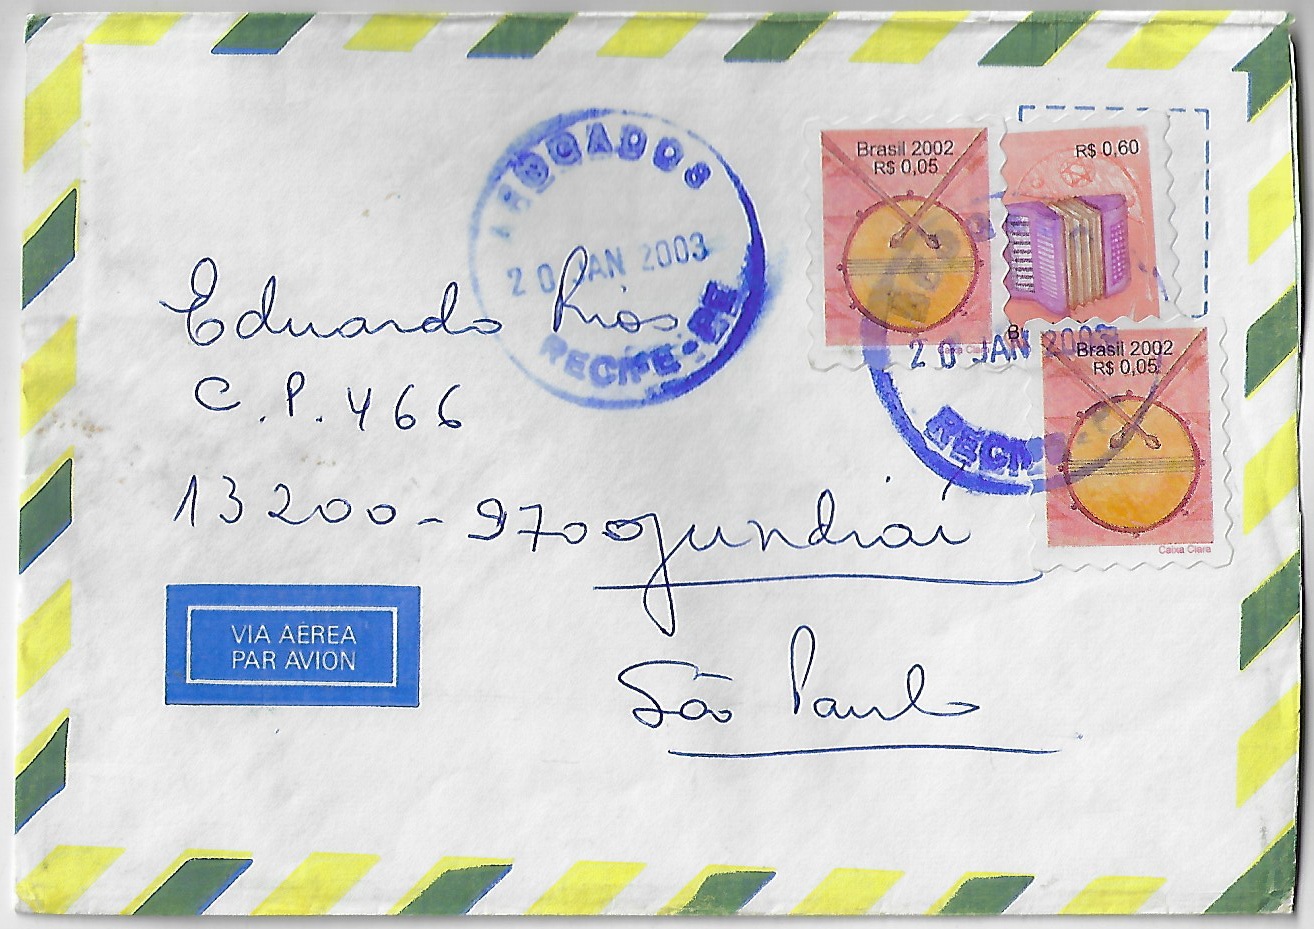 AFOGADOS
20 JAN 2003
RECIFE-PE
Brasil 2002
R$ 0,05
R$ 0,60
20 JAN 2003
RECIFE
Brasil 2002
R$ 0,05
Caixa Clara
Eduardo Rios
C.P. 466
13200-970 Jundiaí
São Paulo
VIA AÉREA
PAR AVION